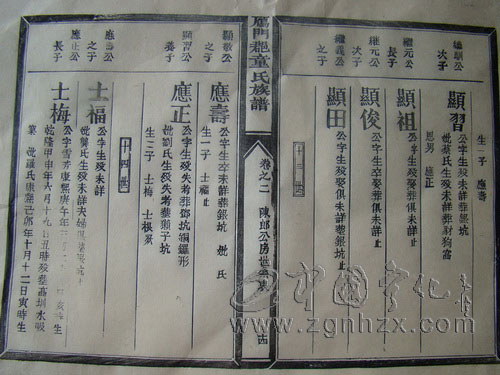 繼訓公
次子
顯習
公字生歿未詳葬銀坑
妣蔡氏生歿未詳葬財狗窩
生一子 應壽
恩男 應正
繼元公
長子
顯祖
公字生歿娶俱未詳止
繼元公
次子
顯俊
公字生卒娶葬俱未詳止
繼義公
之子
顯田
公字生歿娶俱未詳葬銀坑止
十三世
雁門郡童氏族譜
卷之二
陳郎公房世系
顯敬公
之子
應壽
公字生卒未詳葬銀坑 妣 氏
生一子 士福止
顯習公
養子
應正
公字生歿失考葬鄧坑鑼形
妣劉氏生歿失考葬獺子坑
生二子 士梅 士根
十四世
應壽公
之子
士福
公字生歿未詳
應正公
長子
士梅
公字雪乔康熙庚午年 亥時生
乾隆甲申年六月十九日丑時歿葬高圳水吸
業 妣羅氏康熙己卯年十月十二日寅時生
中国字化
www.zgnhzx.com